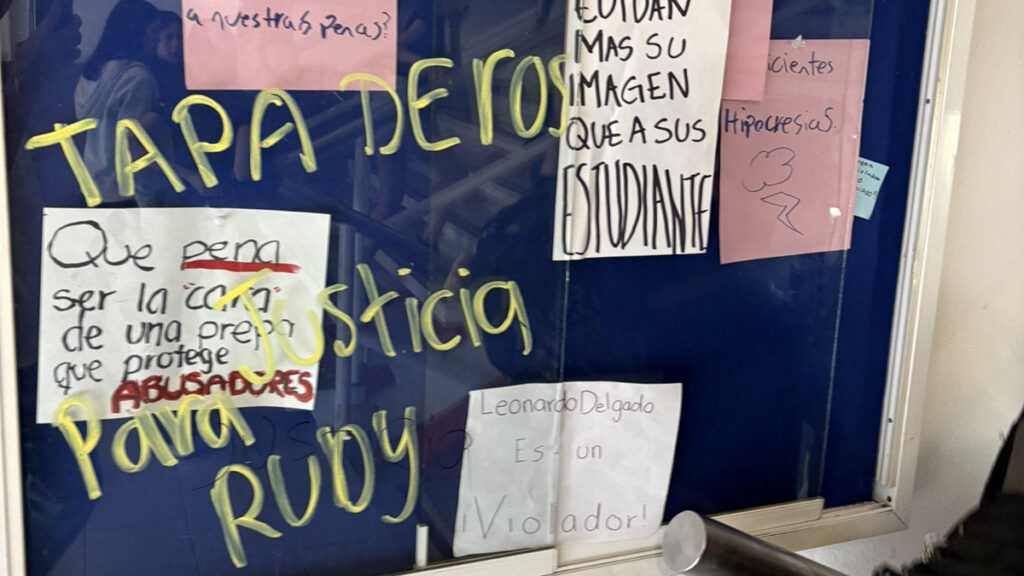 a nuestras penas?
TAPADEROS
CUIDAN
MAS SU
IMAGEN
QUE A SUS
ESTUDIANTE
cientes
Hipocresias.
Que pena
ser la "cara"
de una prepa
que protege
ABUSADORES
Justicia
Para
RUDY
Leonardo Delgado
Es un
¡Violador!